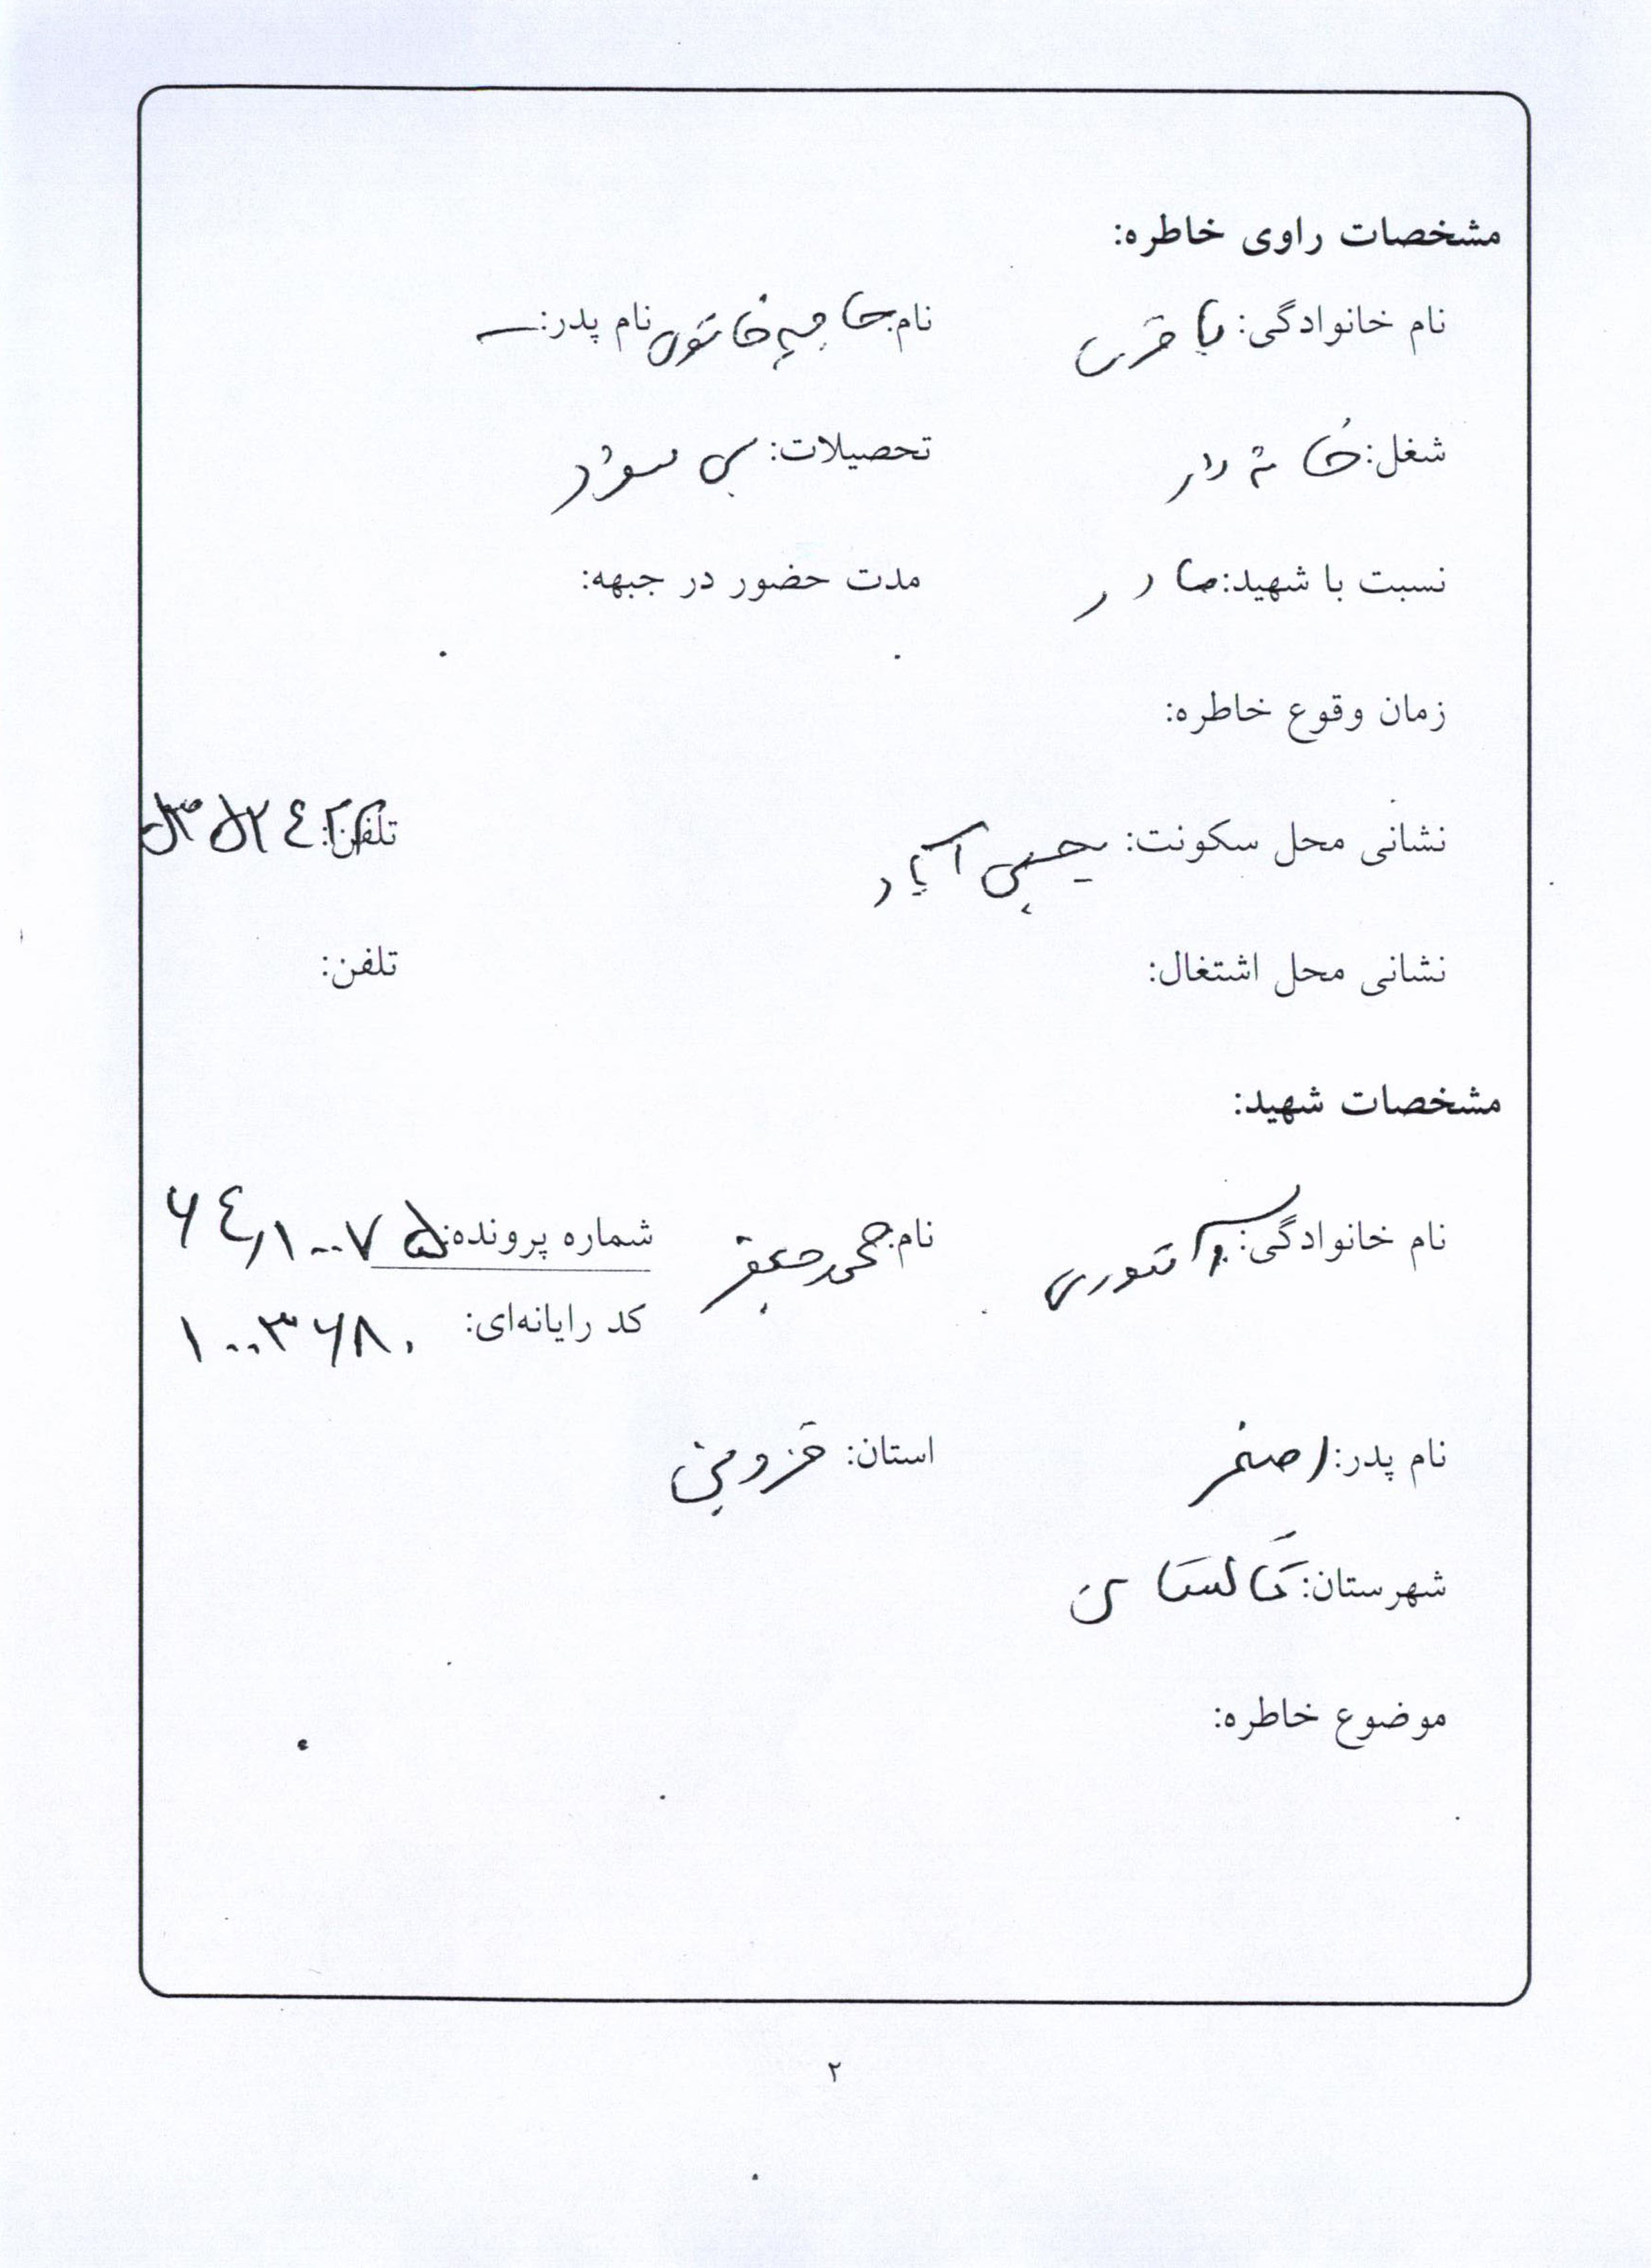 مشخصات راوی خاطره:
نام خانوادگی: باقری نام: حاجیه خاتون نام پدر: —
شغل: خانه دار تحصیلات: بی سواد
نسبت با شهید: مادر مدت حضور در جبهه:
زمان وقوع خاطره:
نشانی محل سکونت: یحیی آباد تلفن:
نشانی محل اشتغال: تلفن:
مشخصات شهید:
نام خانوادگی: نام: محمدجعفر شماره پرونده: ۶۴,۱۰۰۷۵
کد رایانه‌ای: ۱۰۰۳۶۸۰
نام پدر: اصغر استان: قزوین
شهرستان: تاکستان
موضوع خاطره:
۲